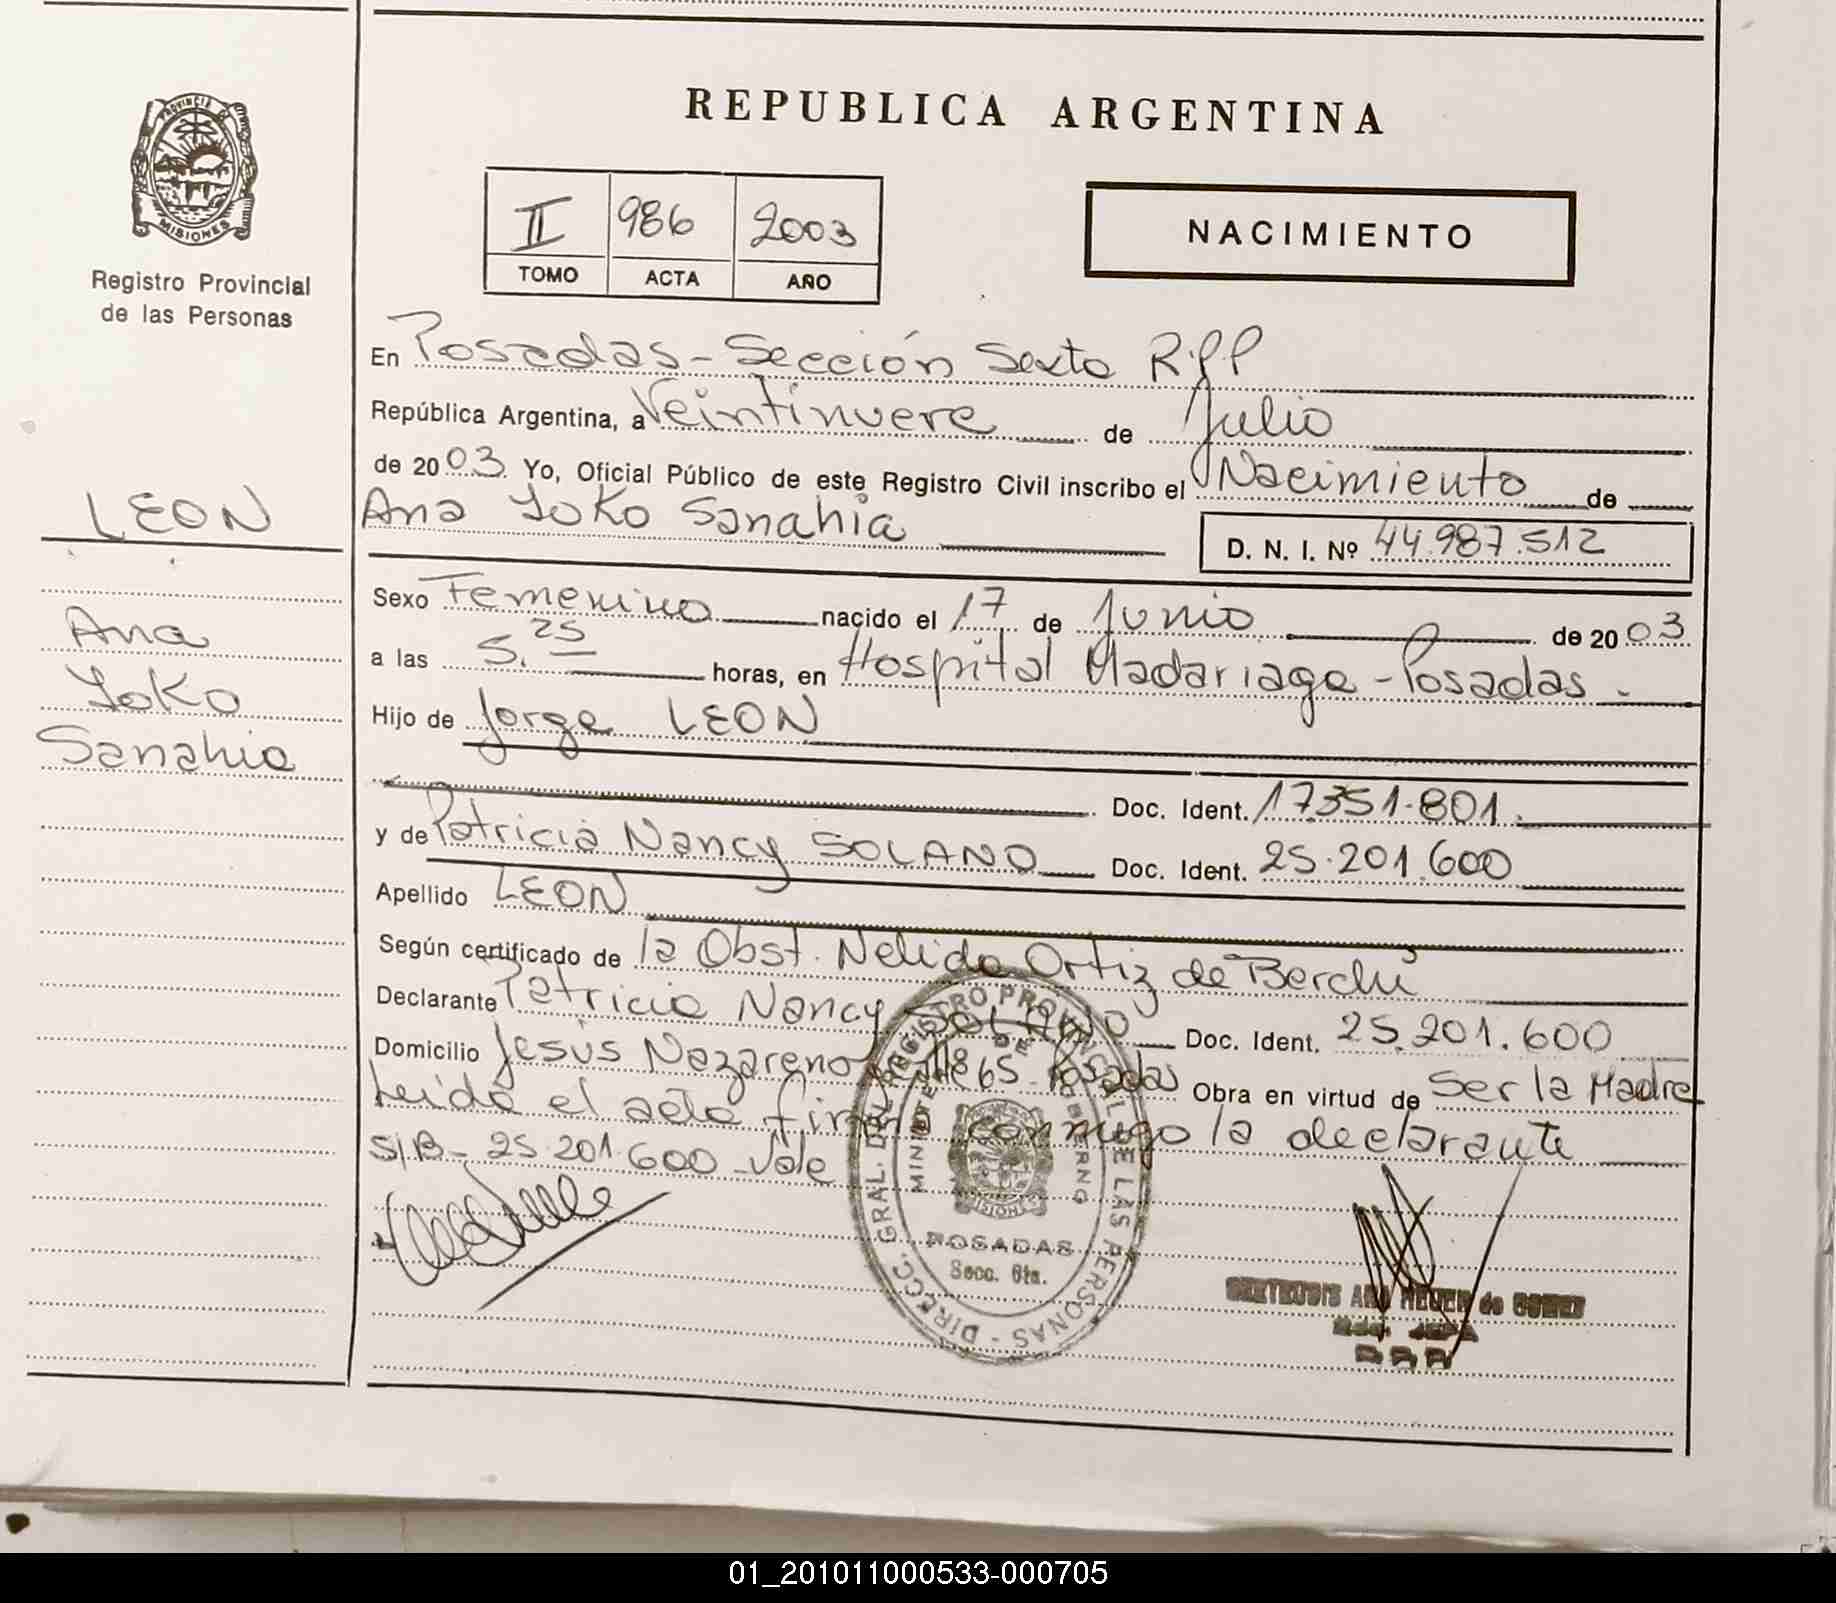 PROVINCIA DE
MISIONES
Registro Provincial
de las Personas
LEON
Ana
Yoko
Sanahia
REPUBLICA ARGENTINA
II 986 2003
TOMO ACTA AÑO
NACIMIENTO
En Posadas - Sección Sexta R.P.P
República Argentina, a Veintinueve de Julio
de 2003 Yo, Oficial Público de este Registro Civil inscribo el Nacimiento de
Ana Yoko Sanahia D. N. I. Nº 44.987.512
Sexo Femenino nacido el 17 de Junio de 2003
a las 5.25 horas, en Hospital Madariaga - Posadas -
Hijo de Jorge LEON
Doc. Ident. 17.351.801.
y de Patricia Nancy SOLANO Doc. Ident. 25.201.600
Apellido LEON
Según certificado de la Obst. Nelida Ortiz de Berchi
Declarante Patricia Nancy SOLANO Doc. Ident. 25.201.600
Domicilio Jesús Nazareno 865 - Posadas Obra en virtud de Ser la Madre
Leida el acta firma conmigo la declarante
S/B - 25.201.600 - Vale
DIRECC. GRAL. DEL REGISTRO PROVINCIAL DE LAS PERSONAS -
MINISTERIO DE GOBIERNO
MISIONES
POSADAS
Secc. 6ta.
de GOMEZ
01_201011000533-000705